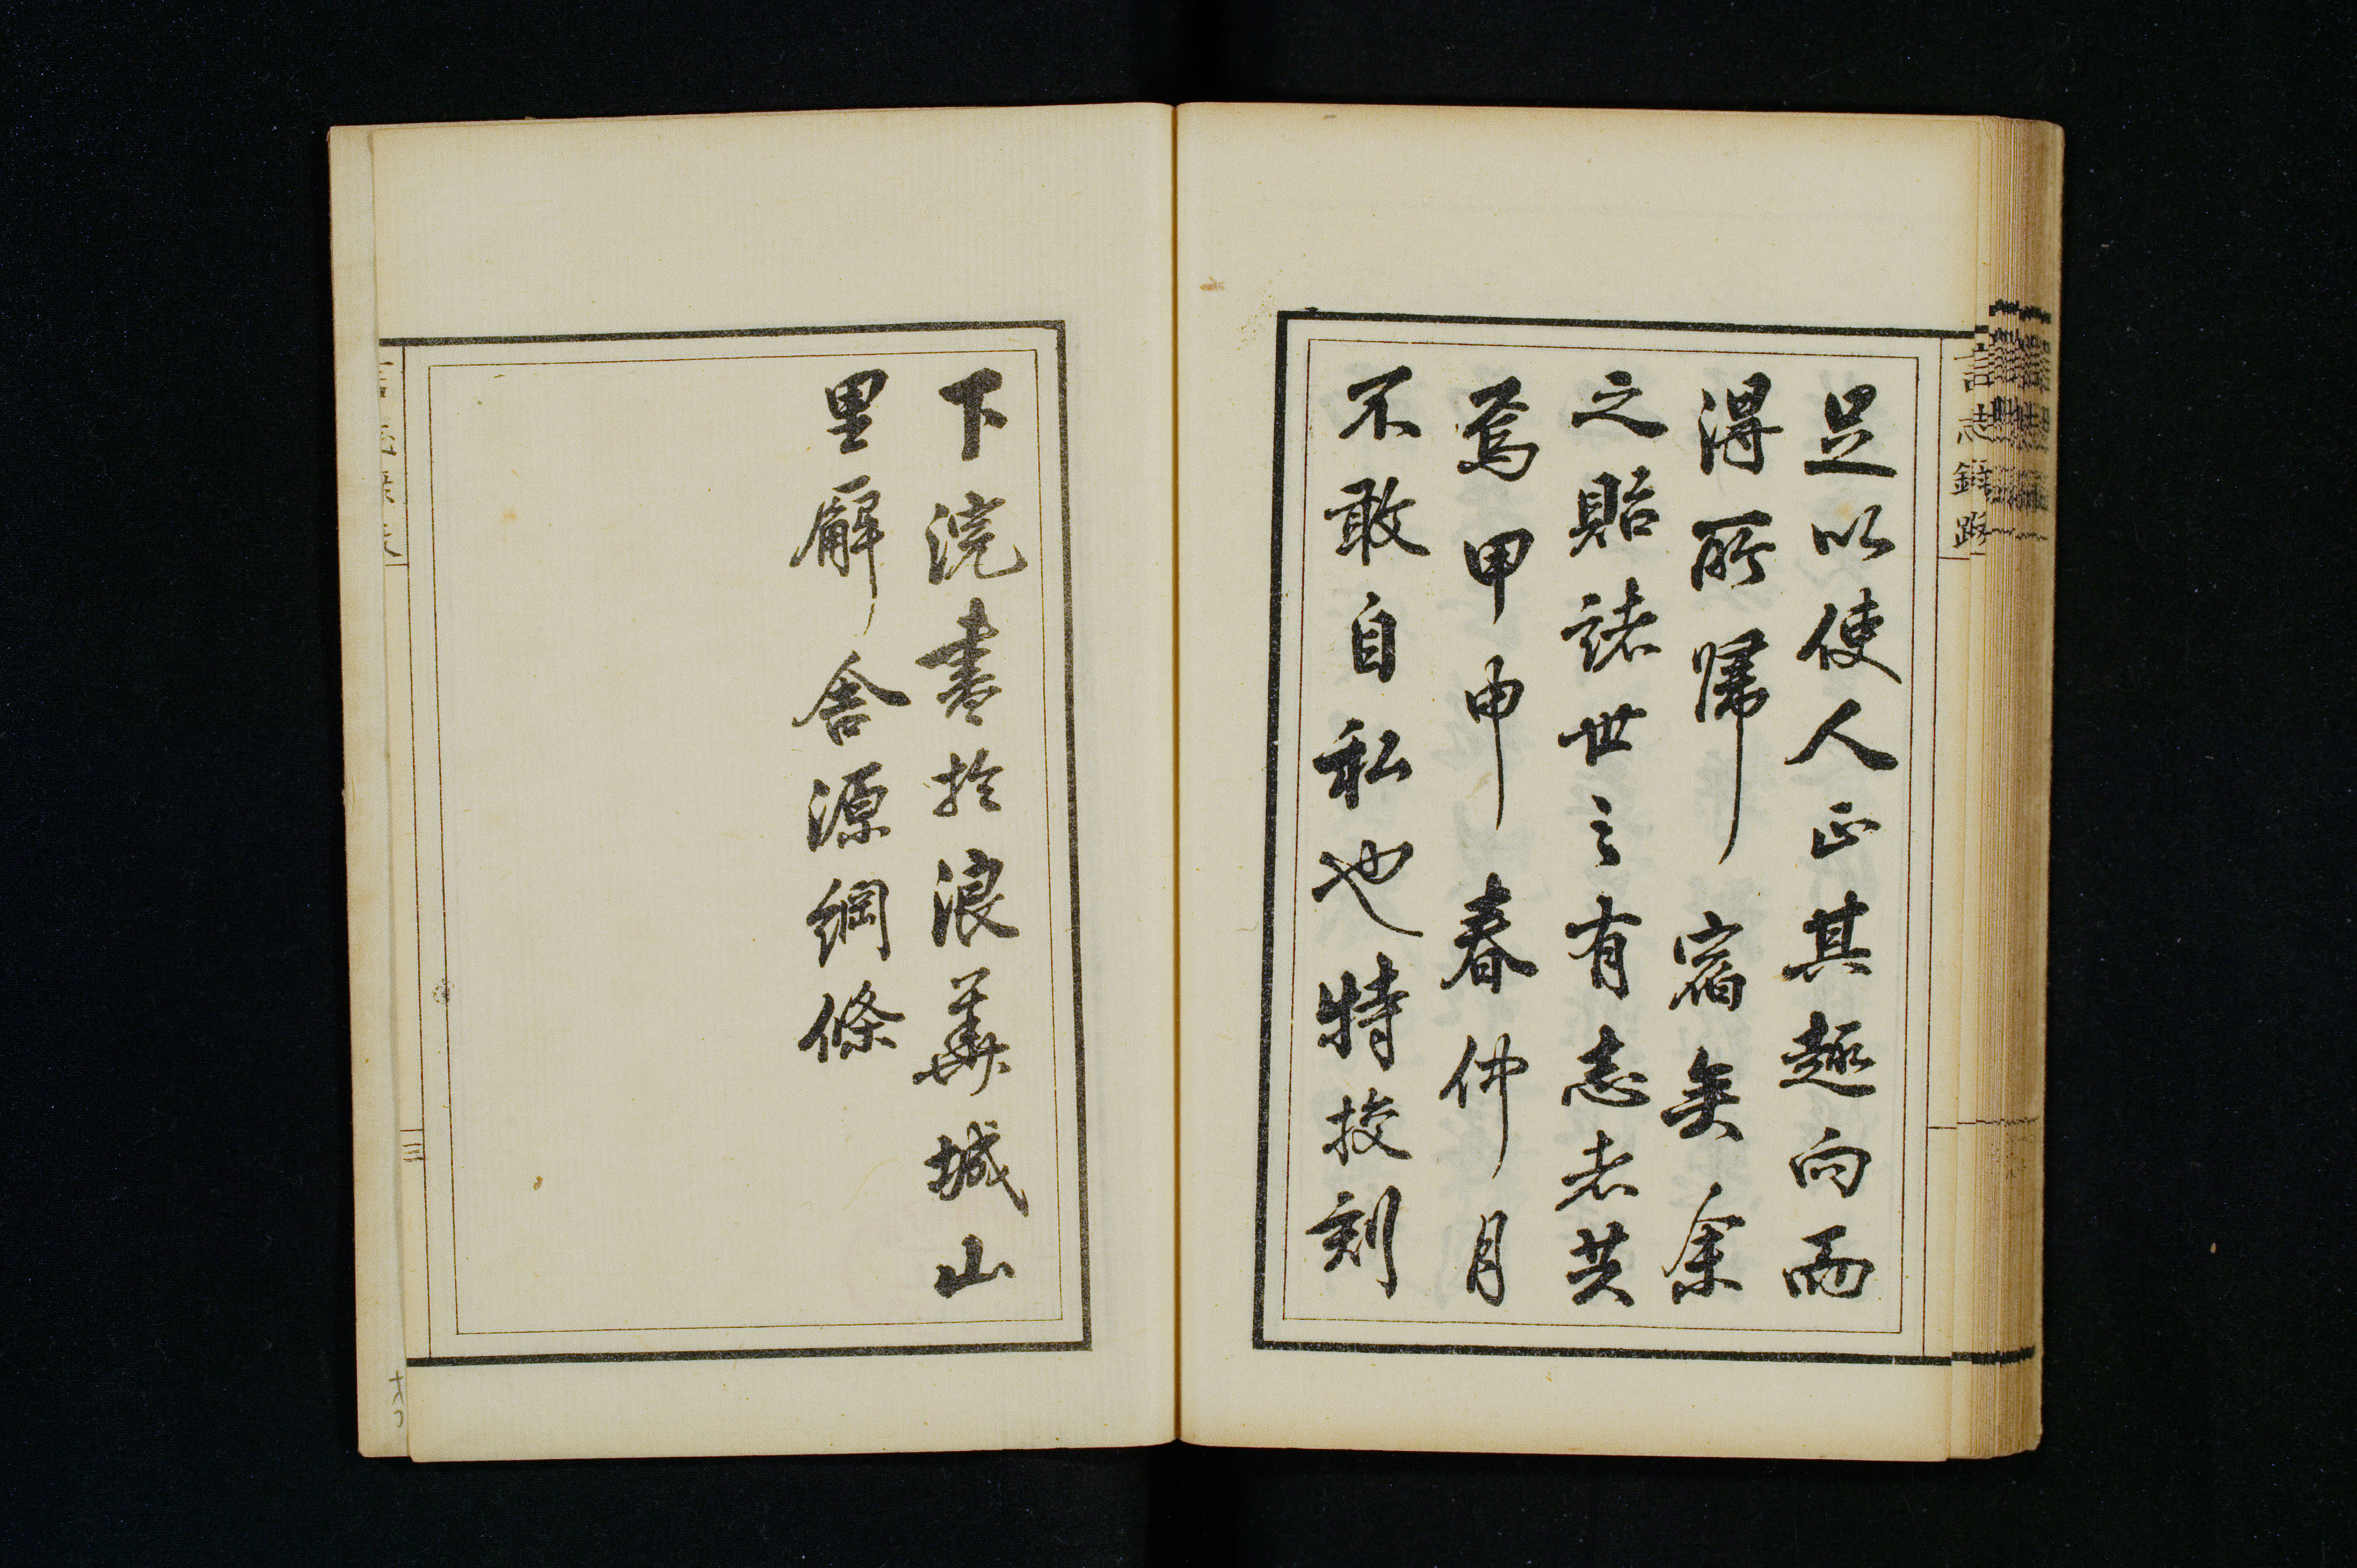 言志錄跋
足以使人正其趣向而
得所歸宿矣余
之貽諸世之有志者共
焉甲申春仲月
不敢自私也特挍刻
下浣書於浪華城山
里廨舍源綱條
三